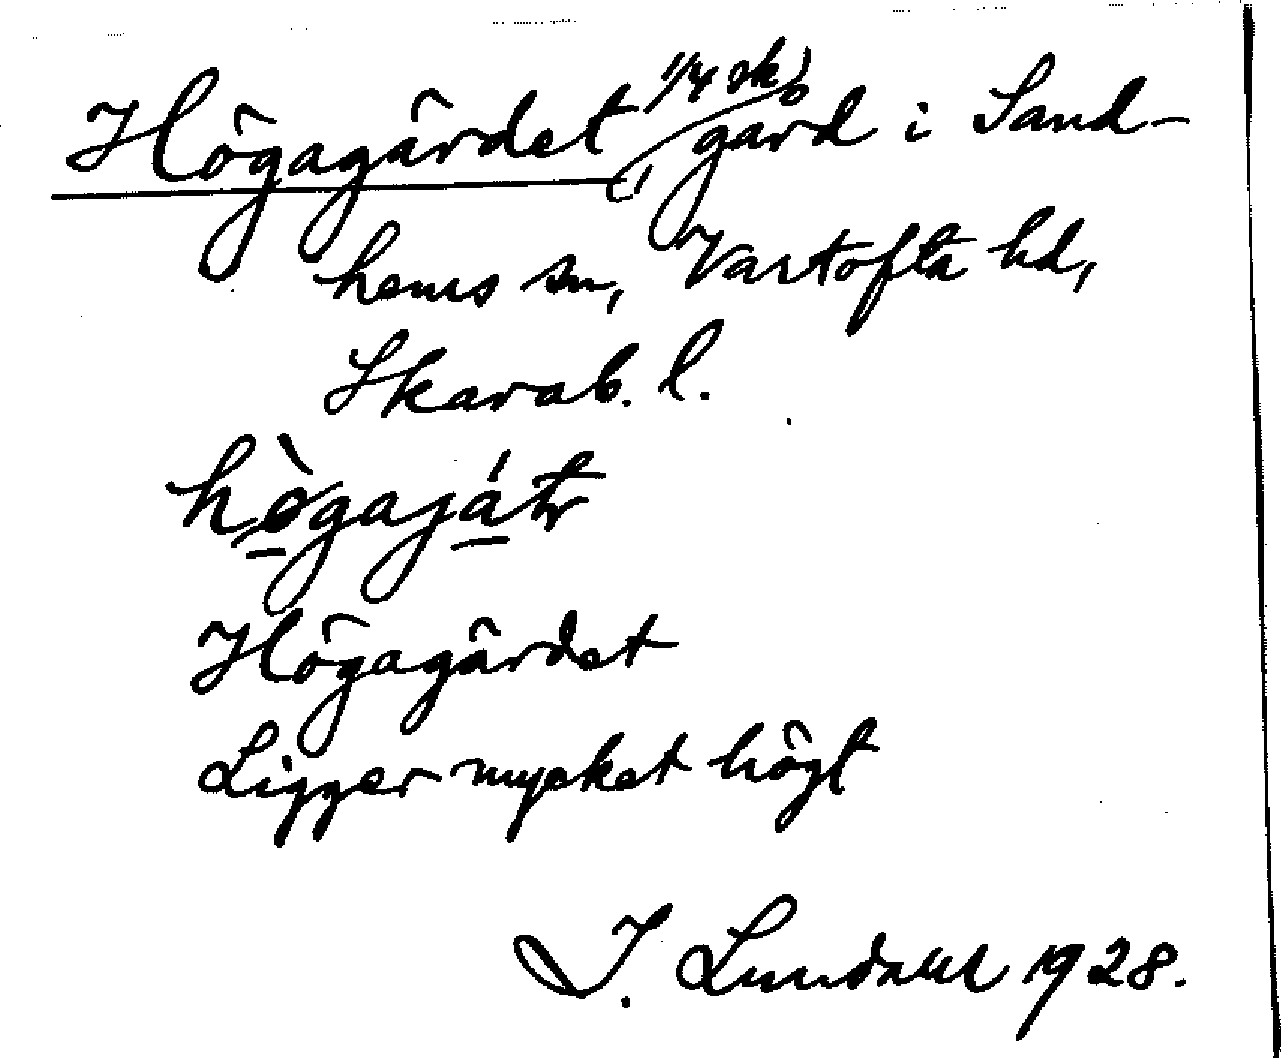 Högagärdet 1/4 sk, gård i Sand-
hems sn, Vartofta hd,
Skarab. l.
hògajátr
Högagärdet
Ligger mycket högt
I. Lundahl 1928.